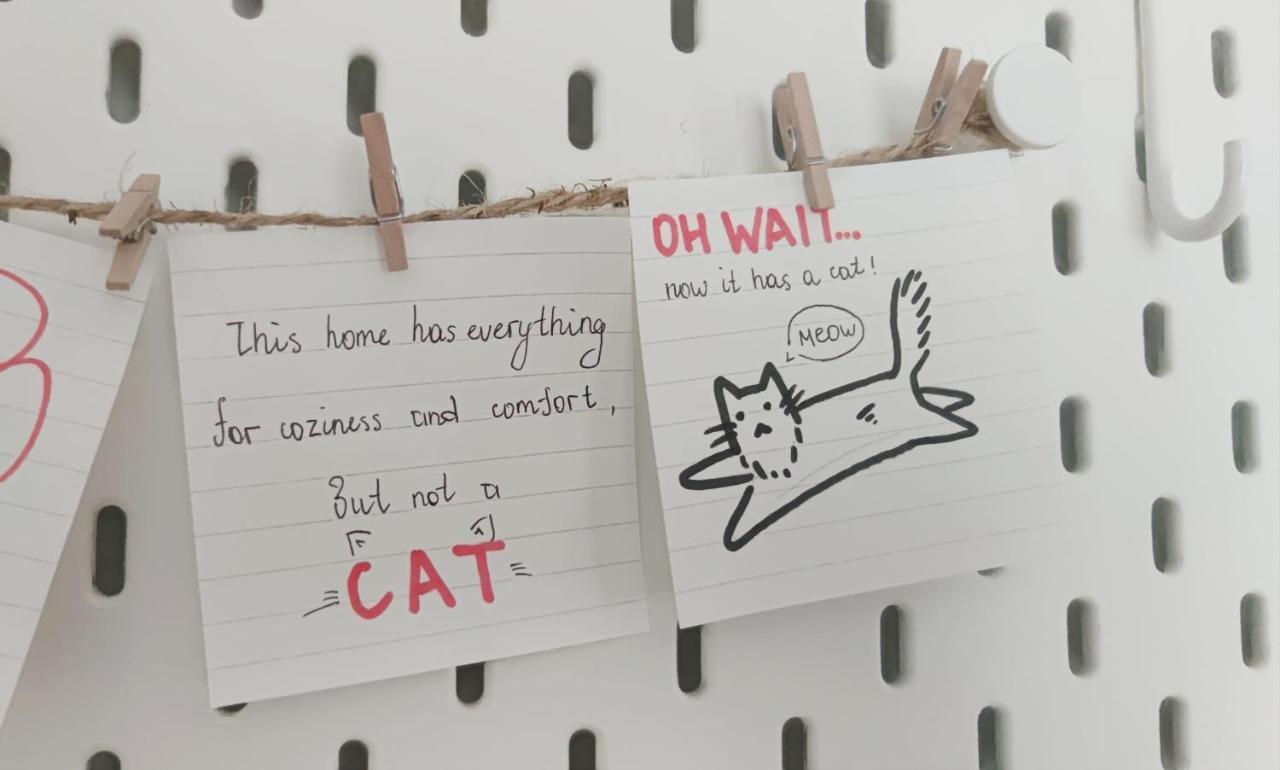 This home has everything
for coziness and comfort,
But not a
CAT
OH WAIT...
now it has a cat!
MEOW